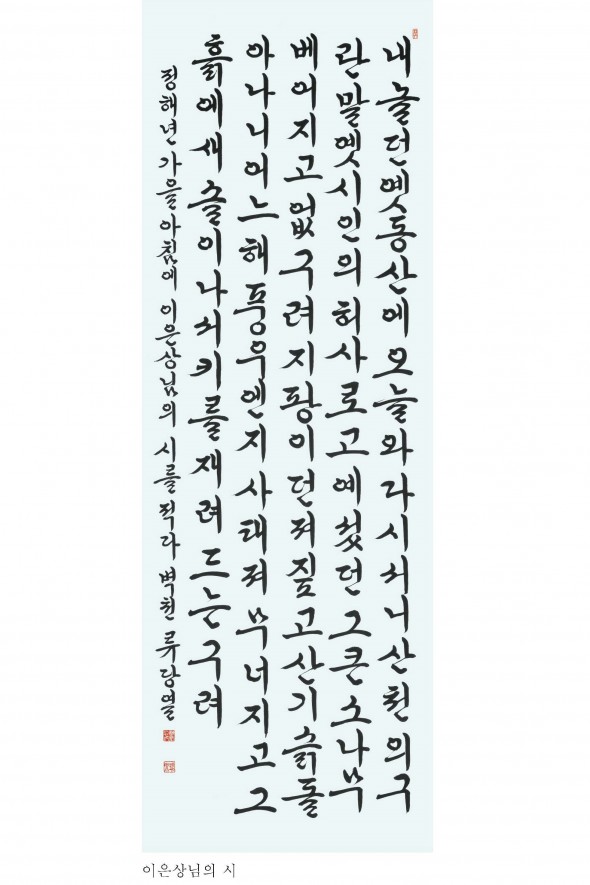 내놀던옛동산에오늘와다시서니산천의구
란말옛시인의허사로고예섰던그큰소나무
베어지고없구려지팡이던져짚고산기슭돌
아나니어느해풍우엔지사태져무너지고그
흙에새솔이나서키를재려드는구려
정해년 가을 아침에 이은상님의 시를 적다 벽천 류당열
이은상님의 시